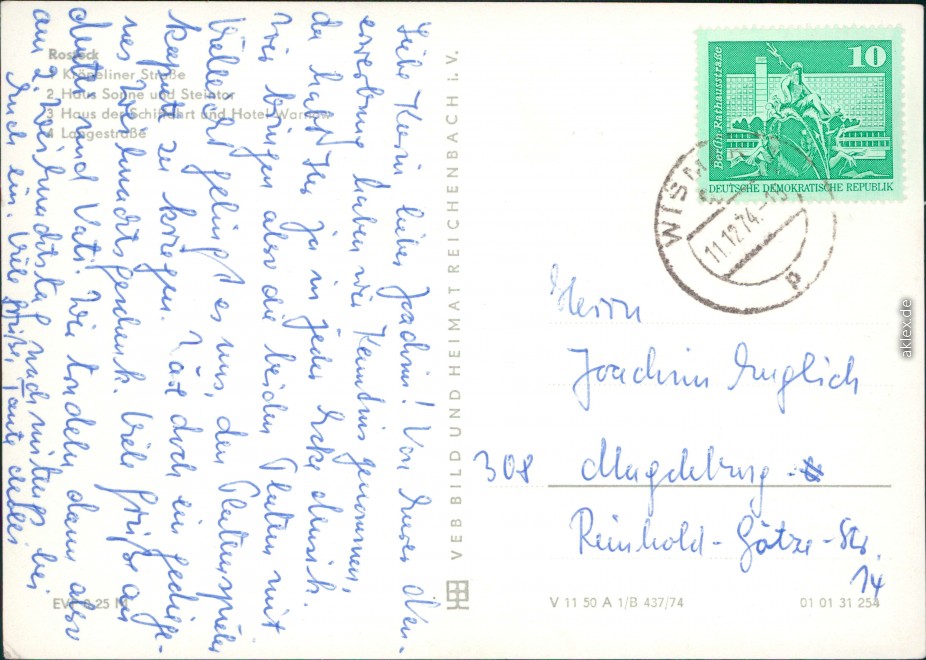 Liebe Karin, lieber Joachim! Von Eurer Neu-
erwerbung haben wir Kenntnis genommen,
da habt Ihr ja in jeder Ecke Musik.
Wir bringen also die beiden Platten mit
Vielleicht gelingt es uns, den Plattenspieler
kaputt zu kriegen. Wäre doch ein gediege-
nes Weihnachtsgeschenk. Viele Grüße an
Mutti und Vati. Wir trudeln dann also
am 2. Weihnachtstag nachmittags bei
Euch ein. Viele Grüße, Tante
Rostock
1 Kröpeliner Straße
2 Haus Sonne und Steintor
3 Haus der Schiffahrt und Hotel Warnow
4 Langestraße
EVP 0,25 M
VEB BILD UND HEIMAT REICHENBACH I. V.
V 11 50 A 1/B 437/74
01 01 31 254
10
Berlin·Rathausstraße
DEUTSCHE DEMOKRATISCHE REPUBLIK
WISMAR
11.12.74.-18
p
Herrn
Joachim Englich
308 Magdeburg
Reinhold-Götze-Str.
14
aklex.de